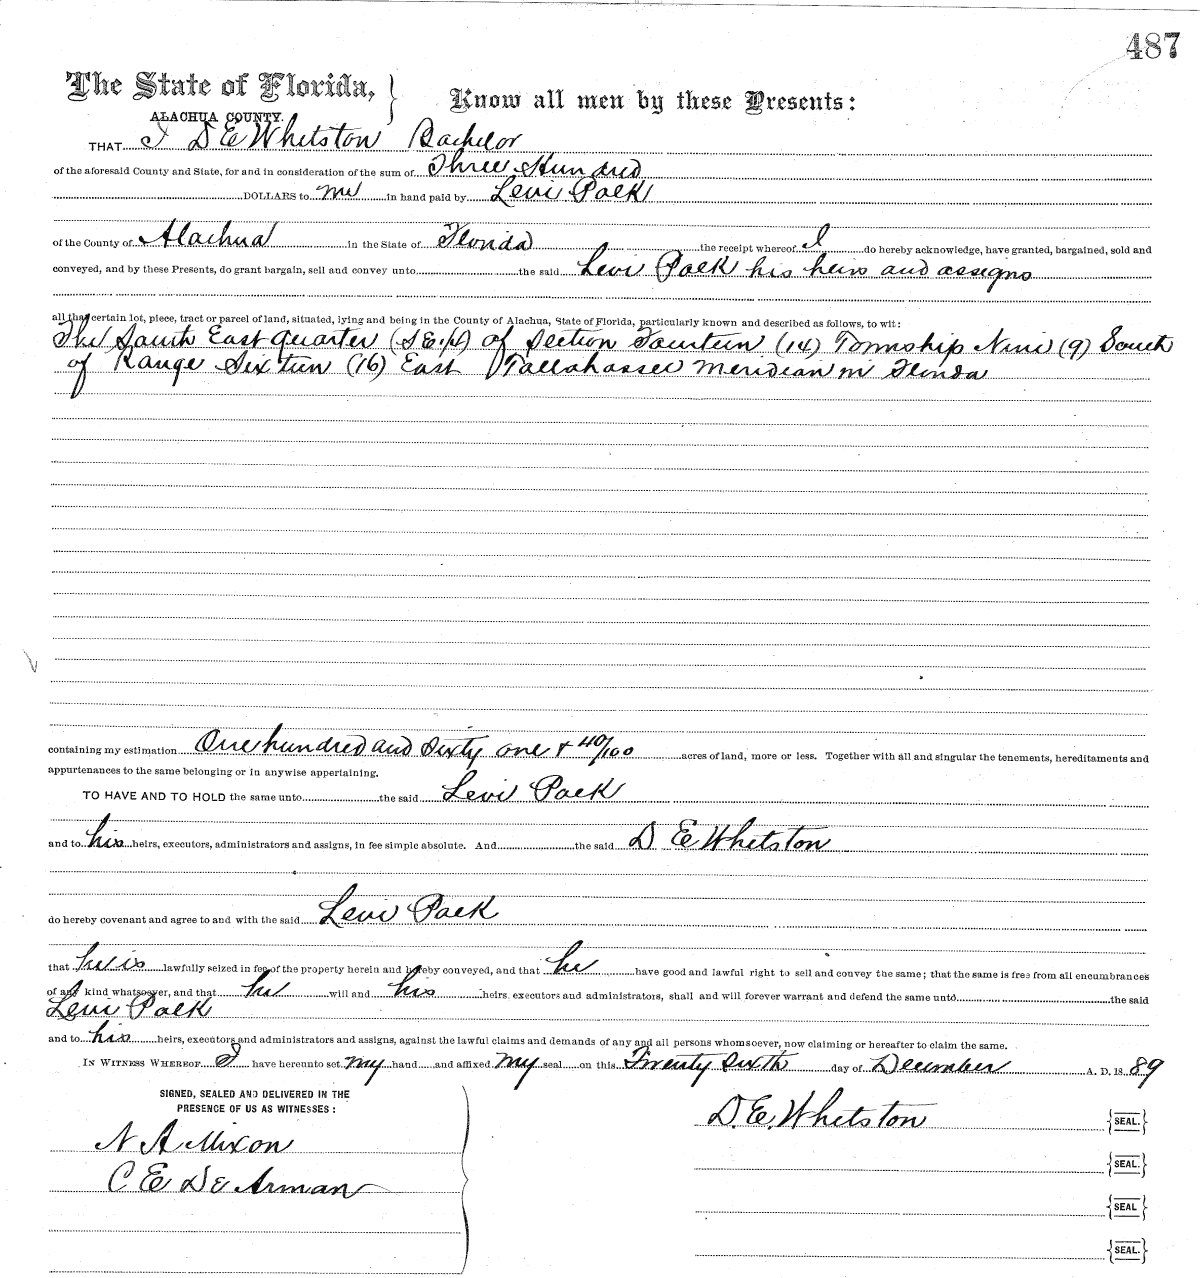 487
The State of Florida,
ALACHUA COUNTY.
Know all men by these Presents:
THAT I D E Whetston Bachelor
of the aforesaid County and State, for and in consideration of the sum of Three Hundred
DOLLARS to me in hand paid by Levi Paek
of the County of Alachua in the State of Florida the receipt whereof I do hereby acknowledge, have granted, bargained, sold and
conveyed, and by these Presents, do grant bargain, sell and convey unto the said Levi Paek his heirs and assigns
all that certain lot, piece, tract or parcel of land, situated, lying and being in the County of Alachua, State of Florida, particularly known and described as follows, to wit:
The South East quarter (SE.¼) of Section Fourteen (14) Township Nine (9) South
of Range Sixteen (16) East Tallahassee Meridian in Florida
containing my estimation One hundred and sixty one & 40/100 acres of land, more or less. Together with all and singular the tenements, hereditaments and
appurtenances to the same belonging or in anywise appertaining.
TO HAVE AND TO HOLD the same unto the said Levi Paek
and to his heirs, executors, administrators and assigns, in fee simple absolute. And the said D E Whetston
do hereby covenant and agree to and with the said Levi Paek
that he is lawfully seized in fee of the property herein and hereby conveyed, and that he have good and lawful right to sell and convey the same; that the same is free from all encumbrances
of any kind whatsoever, and that he will and his heirs, executors and administrators, shall and will forever warrant and defend the same unto the said
Levi Paek
and to his heirs, executors and administrators and assigns, against the lawful claims and demands of any and all persons whomsoever, now claiming or hereafter to claim the same.
IN WITNESS WHEREOF I have hereunto set my hand and affixed my seal on this Twenty sixth day of December A. D. 18 89
SIGNED, SEALED AND DELIVERED IN THE
PRESENCE OF US AS WITNESSES:
D. E. Whetston SEAL.
N A Mixon
SEAL.
C E De Arman
SEAL
SEAL.